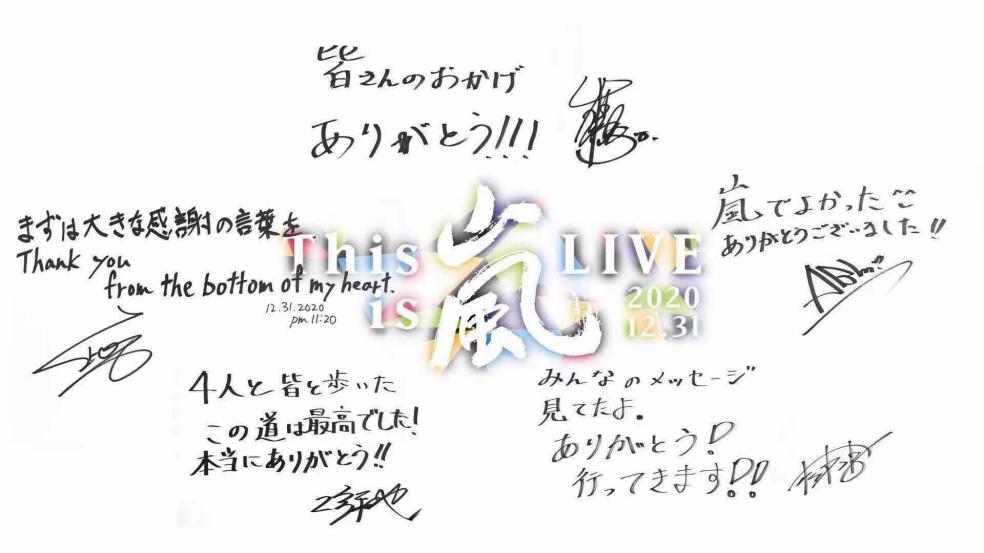 皆さんのおかげ
ありがとう!!!
まずは大きな感謝の言葉を.
Thank you
from the bottom of my heart.
12.31.2020
pm 11:20
This is 嵐 LIVE
2020
12.31
嵐でよかった^^
ありがとうございました!!
4人と皆と歩いた
この道は最高でした!
本当にありがとう!!
みんなのメッセージ
見てたよ。
ありがとう!
行ってきます!!